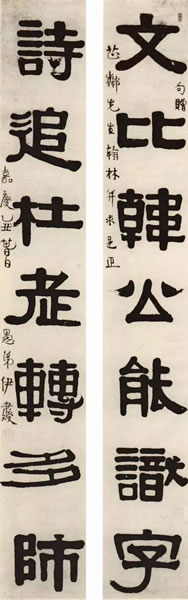 句贈
文比韓公能識字
芷鄰先生翰林并求是正
詩追杜老轉多師
嘉慶乙丑日
愚弟伊秉綬